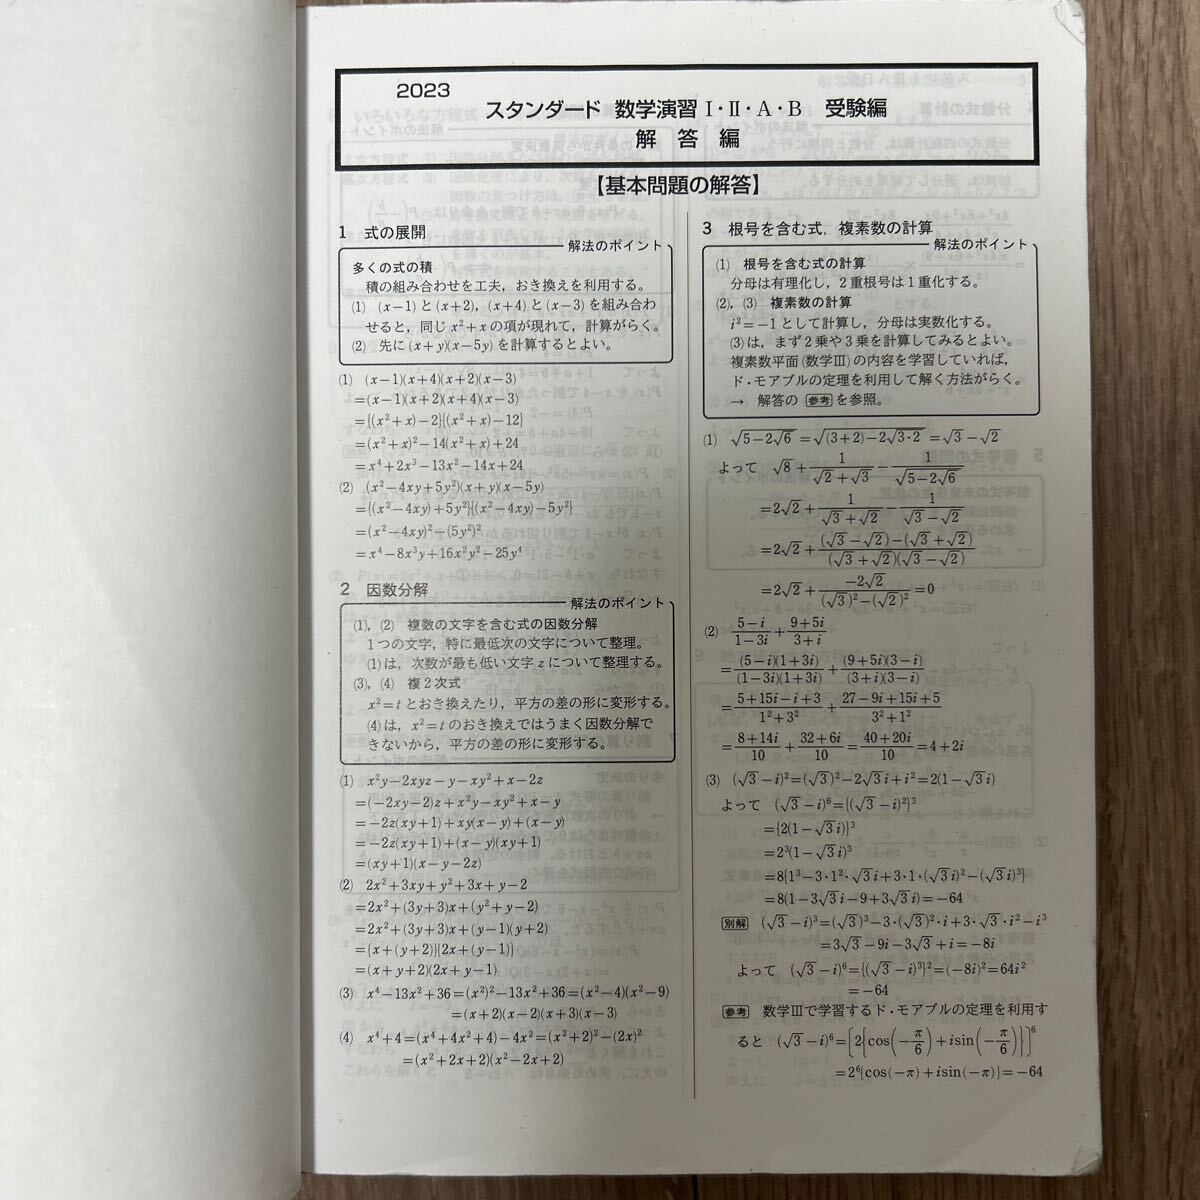 2023
スタンダード 数学演習 I・II・A・B 受験編
解 答 編
【基本問題の解答】
1 式の展開
解法のポイント
多くの式の積
積の組み合わせを工夫，おき換えを利用する。
(1) (x−1) と (x+2)，(x+4) と (x−3) を組み合わ
せると，同じ x²+x の項が現れて，計算がらく。
(2) 先に (x+y)(x−5y) を計算するとよい。
(1) (x−1)(x+4)(x+2)(x−3)
=(x−1)(x+2)(x+4)(x−3)
={(x²+x)−2}{(x²+x)−12}
=(x²+x)²−14(x²+x)+24
=x⁴+2x³−13x²−14x+24
(2) (x²−4xy+5y²)(x+y)(x−5y)
={(x²−4xy)+5y²}{(x²−4xy)−5y²}
=(x²−4xy)²−(5y²)²
=x⁴−8x³y+16x²y²−25y⁴
2 因数分解
解法のポイント
(1)，(2) 複数の文字を含む式の因数分解
1つの文字，特に最低次の文字について整理。
(1)は，次数が最も低い文字 z について整理する。
(3)，(4) 複2次式
x²=t とおき換えたり，平方の差の形に変形する。
(4)は，x²=t のおき換えではうまく因数分解で
きないから，平方の差の形に変形する。
(1) x²y−2xyz−y−xy²+x−2z
=(−2xy−2)z+x²y−xy²+x−y
=−2z(xy+1)+xy(x−y)+(x−y)
=−2z(xy+1)+(x−y)(xy+1)
=(xy+1)(x−y−2z)
(2) 2x²+3xy+y²+3x+y−2
=2x²+(3y+3)x+(y²+y−2)
=2x²+(3y+3)x+(y−1)(y+2)
={x+(y+2)}{2x+(y−1)}
=(x+y+2)(2x+y−1)
(3) x⁴−13x²+36=(x²)²−13x²+36=(x²−4)(x²−9)
=(x+2)(x−2)(x+3)(x−3)
(4) x⁴+4=(x⁴+4x²+4)−4x²=(x²+2)²−(2x)²
=(x²+2x+2)(x²−2x+2)
3 根号を含む式，複素数の計算
解法のポイント
(1) 根号を含む式の計算
分母は有理化し，2重根号は1重化する。
(2)，(3) 複素数の計算
i²=−1 として計算し，分母は実数化する。
(3)は，まず2乗や3乗を計算してみるとよい。
複素数平面(数学III)の内容を学習していれば，
ド・モアブルの定理を利用して解く方法がらく。
→ 解答の 参考 を参照。
(1) √(5−2√6)=√((3+2)−2√(3・2))=√3−√2
よって √8+1/(√2+√3)−1/√(5−2√6)
=2√2+1/(√3+√2)−1/(√3−√2)
=2√2+((√3−√2)−(√3+√2))/((√3+√2)(√3−√2))
=2√2+(−2√2)/((√3)²−(√2)²)=0
(2) (5−i)/(1−3i)+(9+5i)/(3+i)
=(5−i)(1+3i)/((1−3i)(1+3i))+(9+5i)(3−i)/((3+i)(3−i))
=(5+15i−i+3)/(1²+3²)+(27−9i+15i+5)/(3²+1²)
=(8+14i)/10+(32+6i)/10=(40+20i)/10=4+2i
(3) (√3−i)²=(√3)²−2√3i+i²=2(1−√3i)
よって (√3−i)⁶={(√3−i)²}³
={2(1−√3i)}³
=2³(1−√3i)³
=8{1³−3・1²・√3i+3・1・(√3i)²−(√3i)³}
=8(1−3√3i−9+3√3i)=−64
別解 (√3−i)³=(√3)³−3・(√3)²・i+3・√3・i²−i³
=3√3−9i−3√3+i=−8i
よって (√3−i)⁶={(√3−i)³}²=(−8i)²=64i²
=−64
参考 数学IIIで学習するド・モアブルの定理を利用す
ると (√3−i)⁶=[2{cos(−π/6)+isin(−π/6)}]⁶
=2⁶{cos(−π)+isin(−π)}=−64